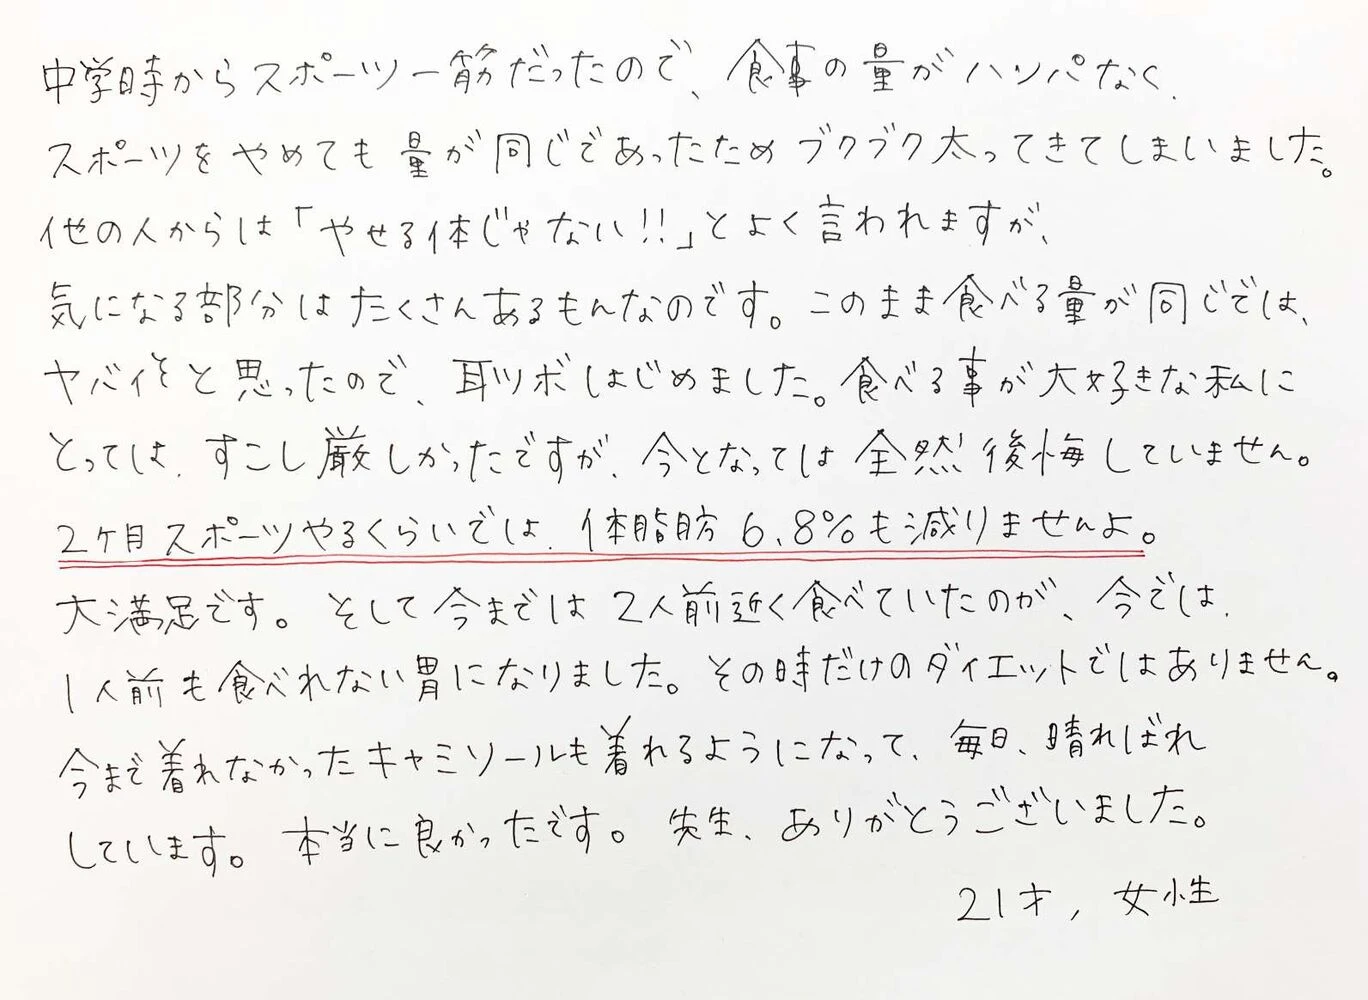 中学時からスポーツ一筋だったので、食事の量がハンパなく、
スポーツをやめても量が同じであったためブクブク太ってきてしまいました。
他の人からは「やせる体じゃない!!」とよく言われますが、
気になる部分はたくさんあるもんなのです。このまま食べる量が同じでは、
ヤバイぞと思ったので、耳ツボはじめました。食べる事が大好きな私に
とっては、すこし厳しかったですが、今となっては全然後悔していません。
2ヶ月スポーツやるくらいでは、体脂肪6.8%も減りませんよ。
大満足です。そして今までは2人前近く食べていたのが、今では、
1人前も食べれない胃になりました。その時だけのダイエットではありません。
今まで着れなかったキャミソールも着れるようになって、毎日、晴ればれ
しています。本当に良かったです。先生、ありがとうございました。
21才,女性